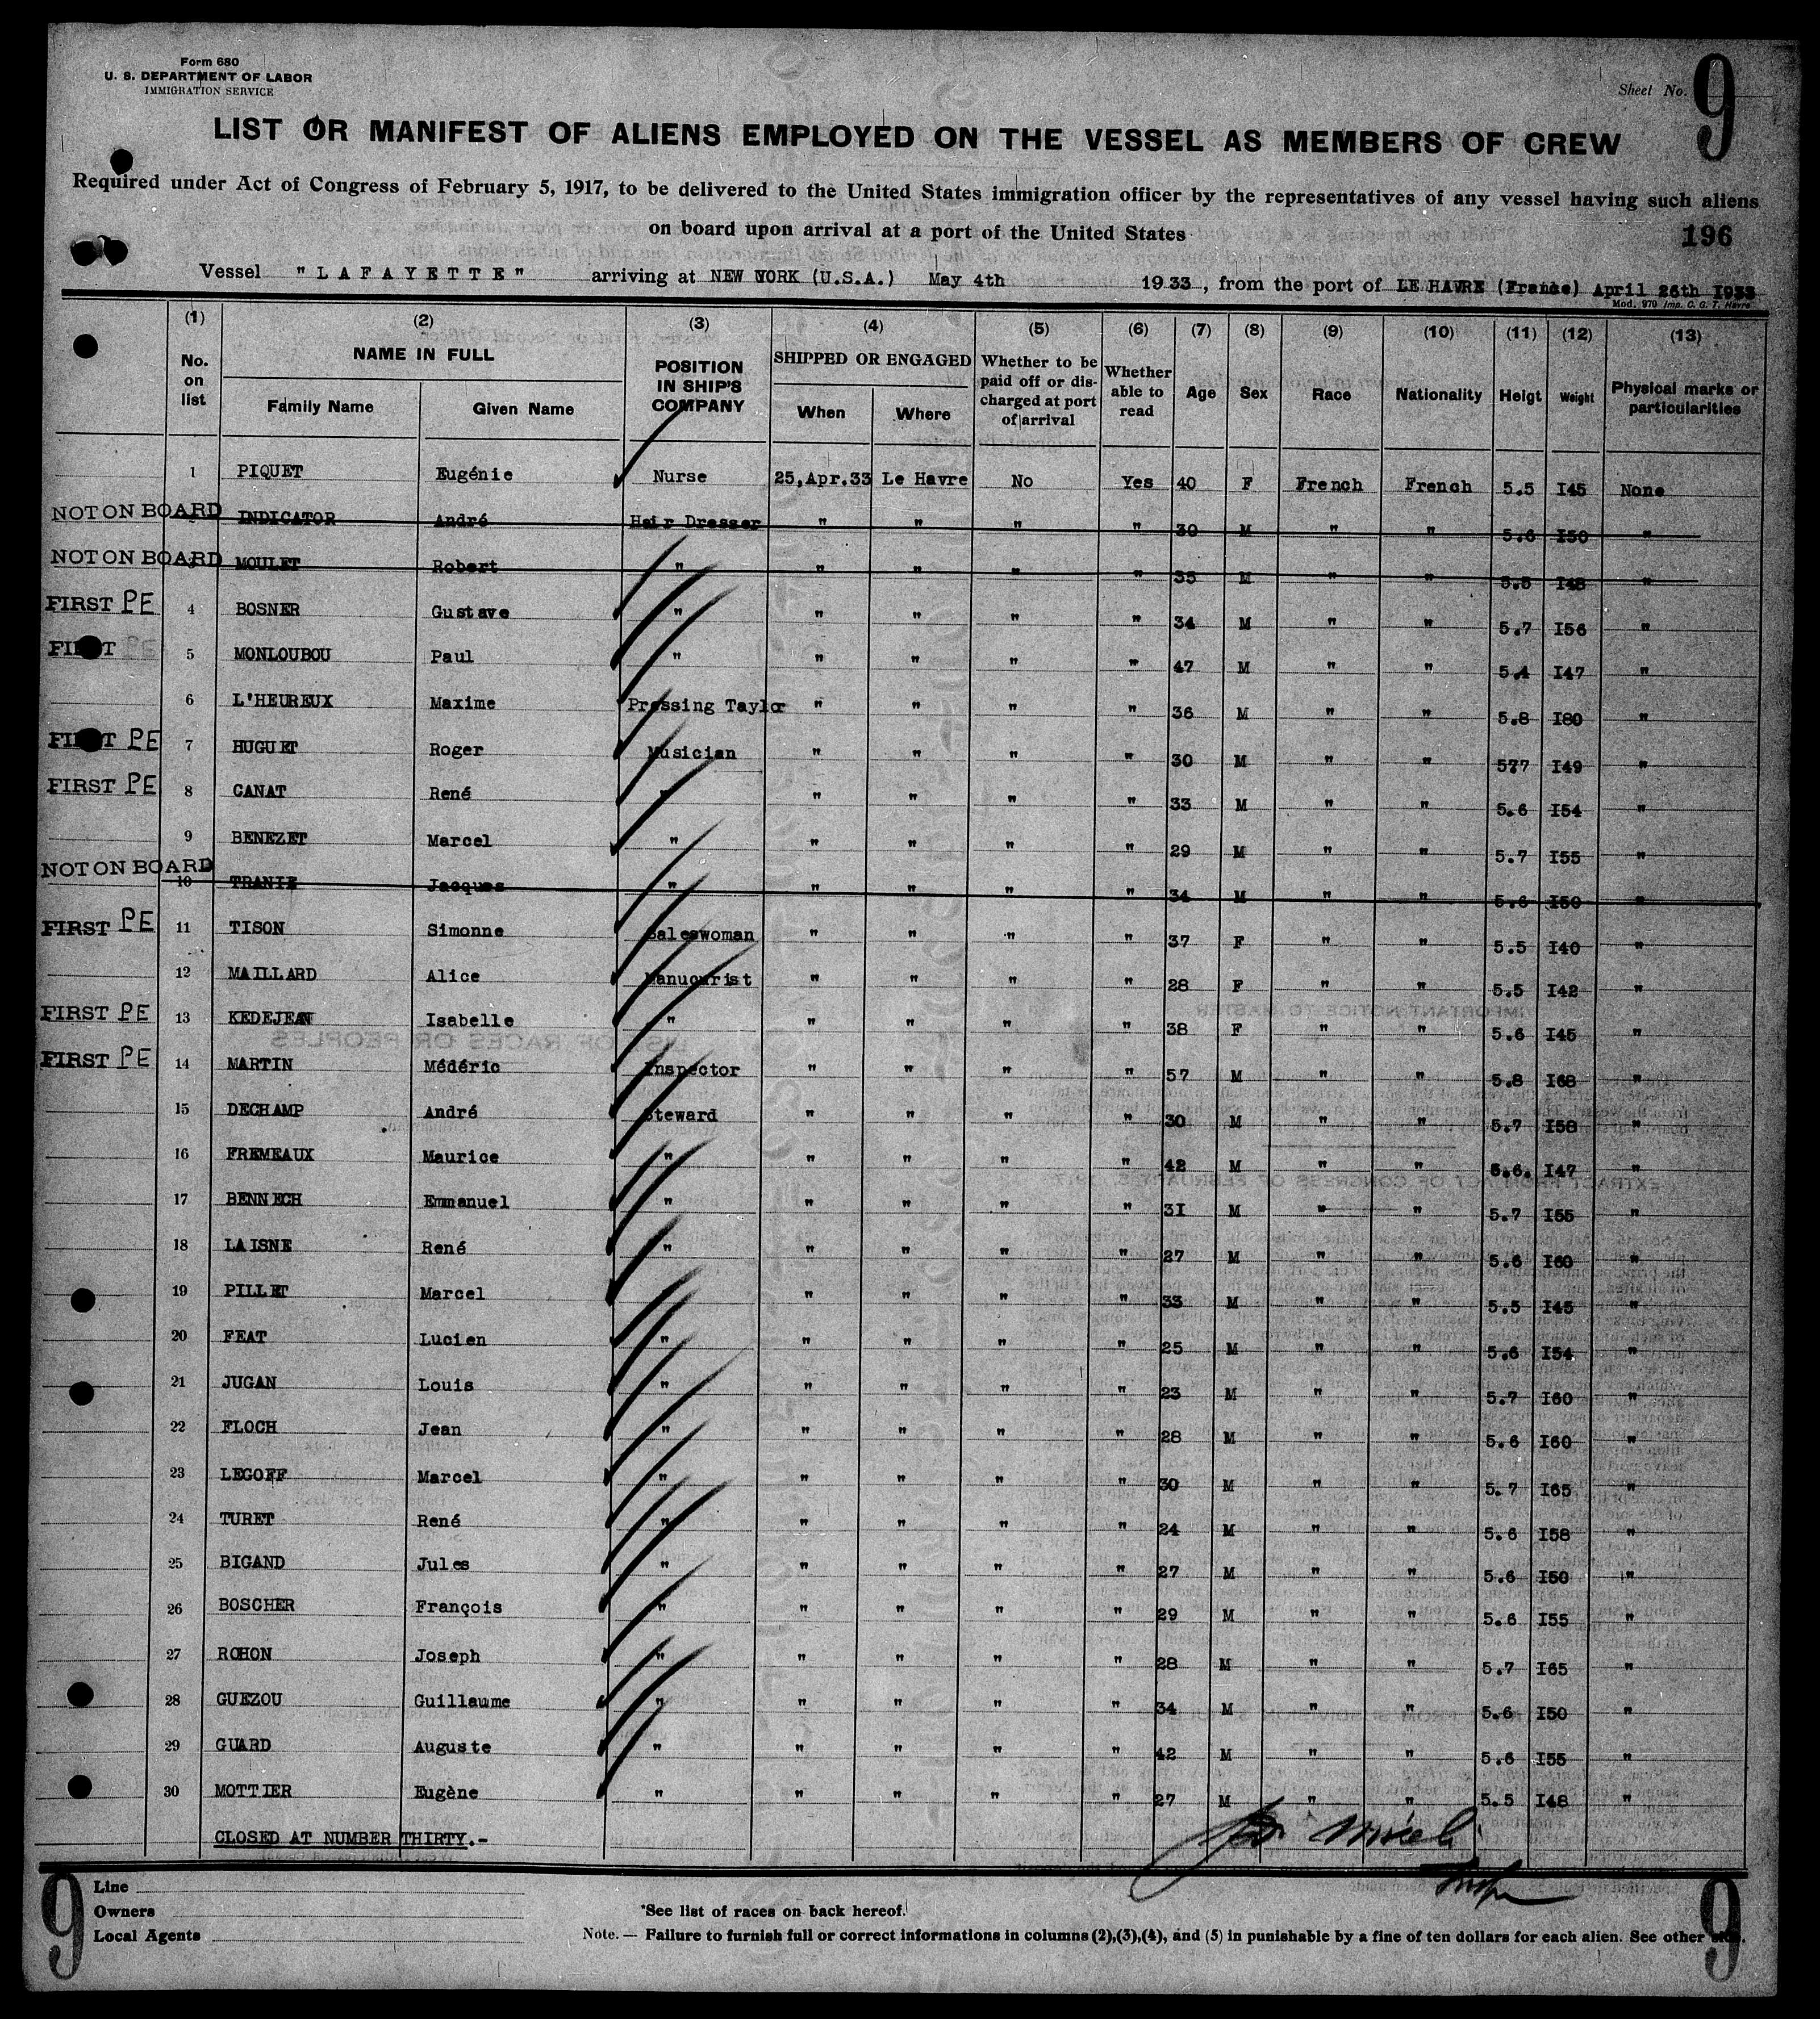 Form 680
U. S. DEPARTMENT OF LABOR
IMMIGRATION SERVICE
Sheet No. 9
LIST OR MANIFEST OF ALIENS EMPLOYED ON THE VESSEL AS MEMBERS OF CREW
Required under Act of Congress of February 5, 1917, to be delivered to the United States immigration officer by the representatives of any vessel having such aliens
on board upon arrival at a port of the United States
196
Vessel "LAFAYETTE" arriving at NEW YORK (U.S.A.) May 4th 1933, from the port of LE HAVRE (France) April 26th 1933
Mod. 979 Imp. C. G. T. Havre
(1) (2) (3) (4) (5) (6) (7) (8) (9) (10) (11) (12) (13)
No. on list NAME IN FULL Family Name Given Name POSITION IN SHIP'S COMPANY SHIPPED OR ENGAGED When Where Whether to be paid off or discharged at port of arrival Whether able to read Age Sex Race Nationality Helgt Weight Physical marks or particularities
1 PIQUET Eugénie Nurse 25,Apr.33 Le Havre No Yes 40 F French French 5.5 I45 None
NOT ON BOARD INDICATOR André Hair Dresser " " " " 30 M " " 5.6 I50 "
NOT ON BOARD MOULET Robert " " " " " 35 M " " 5.5 I48 "
FIRST PE 4 BOSNER Gustave " " " " " 34 M " " 5.7 I56 "
FIRST 5 MONLOUBOU Paul " " " " " 47 M " " 5.4 I47 "
6 L'HEUREUX Maxime Pressing Taylor " " " " 36 M " " 5.8 I80 "
FIRST PE 7 HUGUET Roger Musician " " " " 30 M " " 577 I49 "
FIRST PE 8 CANAT René " " " " " 33 M " " 5.6 I54 "
9 BENEZET Marcel " " " " " 29 M " " 5.7 I55 "
NOT ON BOARD 10 TRANIE Jacques " " " " " 34 M " " 5.6 I50 "
FIRST PE 11 TISON Simonne Saleswoman " " " " 37 F " " 5.5 I40 "
12 MAILLARD Alice Manucurist " " " " 28 F " " 5.5 I42 "
FIRST PE 13 KEDEJEAN Isabelle " " " " " 38 F " " 5.6 I45 "
FIRST PE 14 MARTIN Médéric Inspector " " " " 57 M " " 5.8 I68 "
15 DECHAMP André Steward " " " " 30 M " " 5.7 I58 "
16 FREMEAUX Maurice " " " " " 42 M " " 5.6. I47 "
17 BENNECH Emmanuel " " " " " 3I M " " 5.7 I55 "
18 LAISNE René " " " " " 27 M " " 5.6 I60 "
19 PILLET Marcel " " " " 33 M " " 5.5 I45 "
20 FEAT Lucien " " " " " 25 M " " 5.6 I54 "
21 JUGAN Louis " " " " " 23 M " " 5.7 I60 "
22 FLOCH Jean " " " " " 28 M " " 5.6 I60 "
23 LEGOFF Marcel " " " " " 30 M " " 5.7 I65 "
24 TURET René " " " " " 24 M " " 5.6 I58 "
25 BIGAND Jules " " " " " 27 M " " 5.6 I50 "
26 BOSCHER François " " " " " 29 M " " 5.6 I55 "
27 ROHON Joseph " " " " " 28 M " " 5.7 I65 "
28 GUEZOU Guillaume " " " " " 34 M " " 5.6 I50 "
29 GUARD Auguste " " " " " 42 M " " 5.6 I55 "
30 MOTTIER Eugène " " " " " 27 M " " 5.5 I48 "
CLOSED AT NUMBER THIRTY.-
9 9
Line
Owners
Local Agents
*See list of races on back hereof.
Note. — Failure to furnish full or correct informations in columns (2),(3),(4), and (5) in punishable by a fine of ten dollars for each alien. See other side.